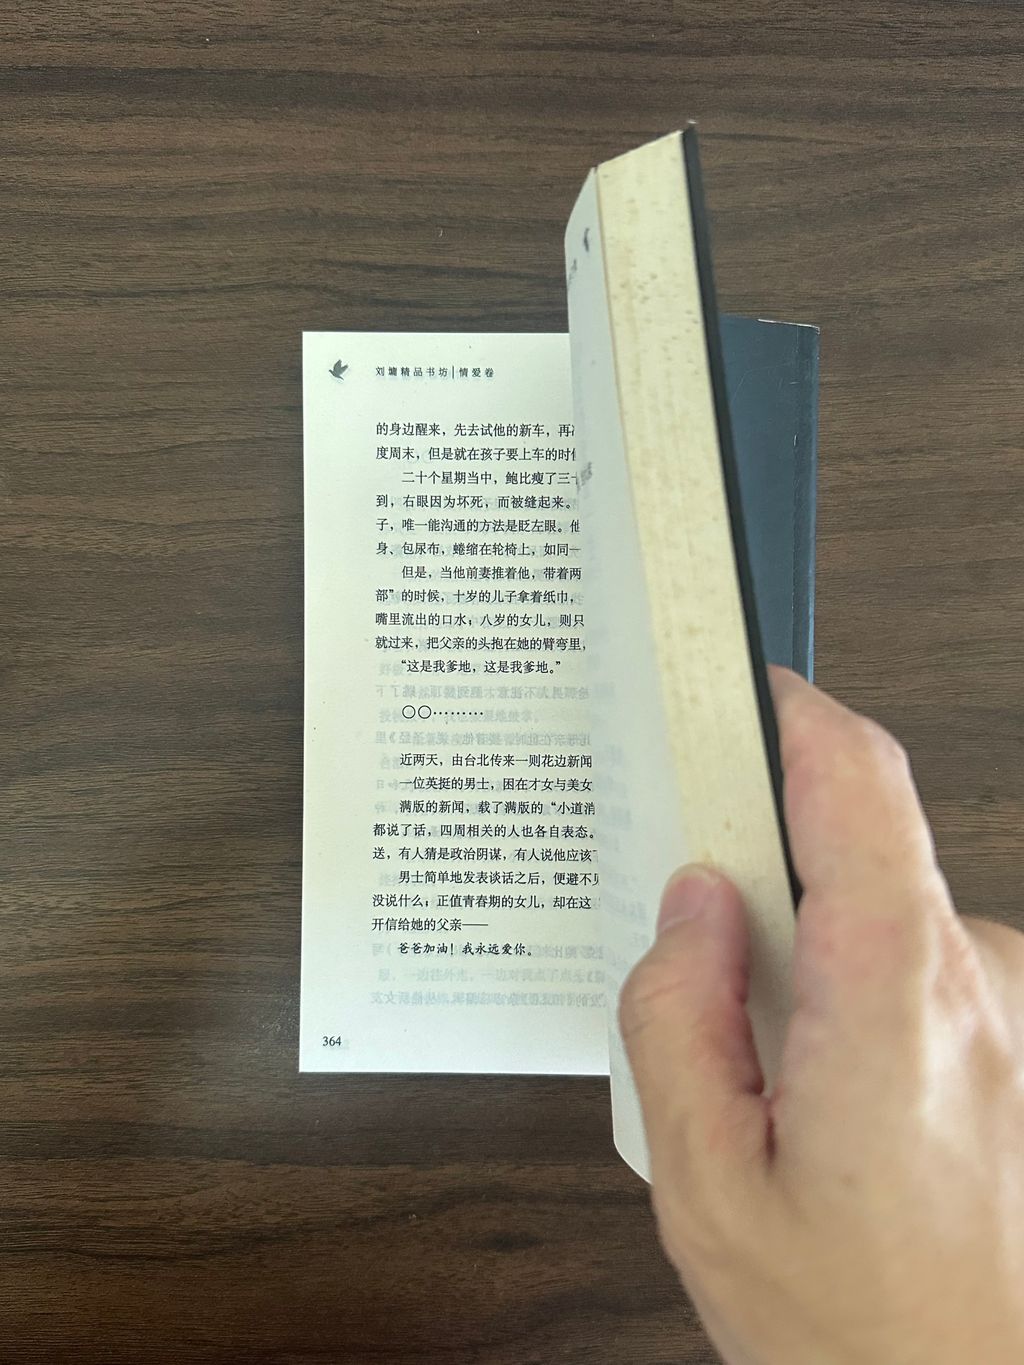 刘墉精品书坊|情爱卷
的身边醒来，先去试他的新车，再
度周末，但是就在孩子要上车的时
二十个星期当中，鲍比瘦了三
到，右眼因为坏死，而被缝起来。
子，唯一能沟通的方法是眨左眼。他
身、包尿布，蜷缩在轮椅上，如同一
但是，当他前妻推着他，带着两
部”的时候，十岁的儿子拿着纸巾，
嘴里流出的口水，八岁的女儿，则只
就过来，把父亲的头抱在她的臂弯里，
“这是我爹地，这是我爹地。”
○○………
近两天，由台北传来一则花边新闻
一位英挺的男士，困在才女与美女
满版的新闻，载了满版的“小道消
都说了话，四周相关的人也各自表态。
送，有人猜是政治阴谋，有人说他应该
男士简单地发表谈话之后，便避不
没说什么；正值青春期的女儿，却在这
开信给她的父亲——
爸爸加油！我永远爱你。
364